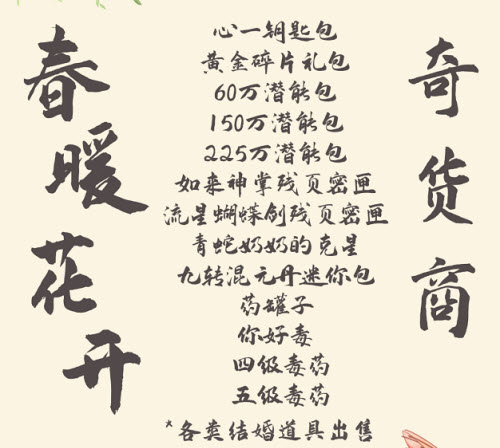 春暖花开
心一钥匙包
黄金碎片礼包
60万潜能包
150万潜能包
225万潜能包
如来神掌残页密匣
流星蝴蝶剑残页密匣
青蛇奶奶的克星
九转混元丹迷你包
药罐子
你好毒
四级毒药
五级毒药
*各类结婚道具出售
奇货商